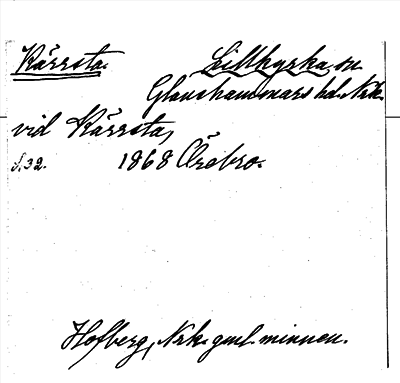 Kärrsta. Lillkyrka sn
Glanshammars hd. Nrk.
vid Kärrsta,
S. 32. 1868 Örebro.
Hofberg, Nrk. gml. minnen.